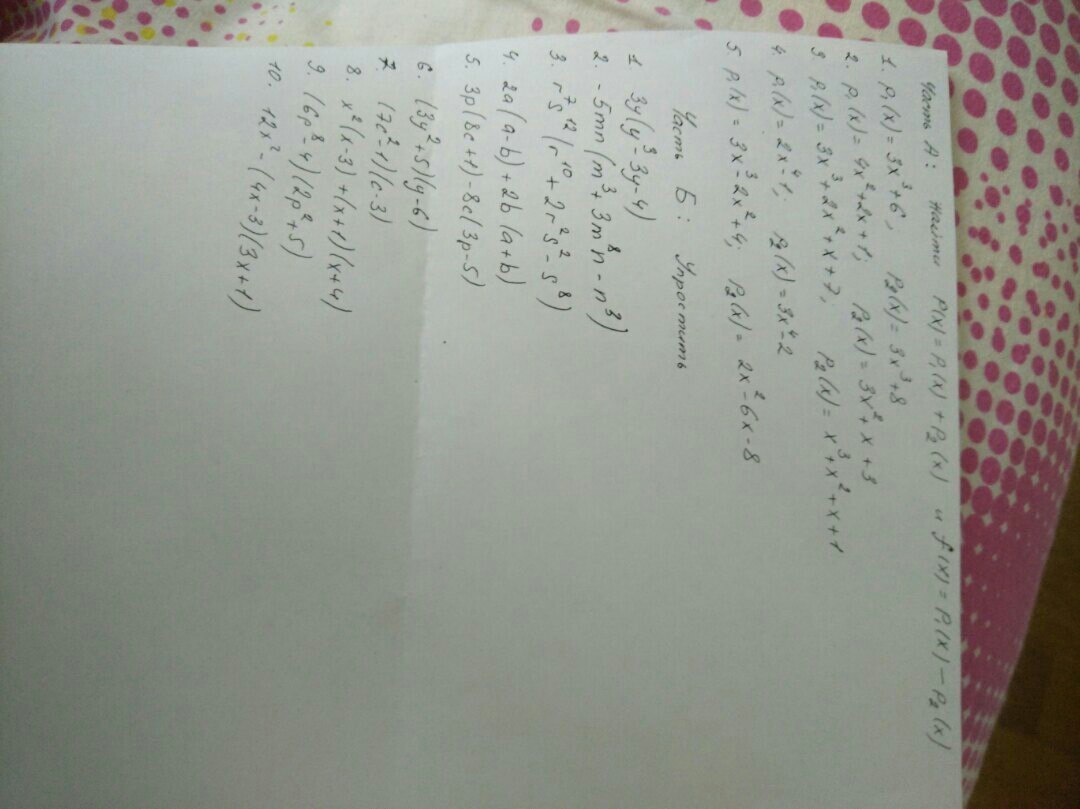 Часть А: Найти P(x) = P₁(x) + P₂(x) и f(x) = P₁(x) − P₂(x)
1. P₁(x) = 3x³+6, P₂(x) = 3x³+8
2. P₁(x) = 4x²+2x+1; P₂(x) = 3x²+x+3
3. P₁(x) = 3x³+2x²+x+7, P₂(x) = x³+x²+x+1
4. P₁(x) = 2x⁴-1; P₂(x) = 3x⁴-2
5. P₁(x) = 3x³-2x²+4; P₂(x) = 2x²-6x-8
Часть Б: Упростить
1. 3y(y³-3y-4)
2. -5mn(m³+3m⁸n-n³)
3. r⁷s¹²(r¹⁰+2r²s²-s⁸)
4. 2a(a-b)+2b(a+b)
5. 3p(8c+1)-8c(3p-5)
6. (3y²+5)(y-6)
7. (7c²-1)(c-3)
8. x²(x-3)+(x+1)(x+4)
9. (6p⁸-4)(2p²+5)
10. 12x²-(4x-3)(3x+1)